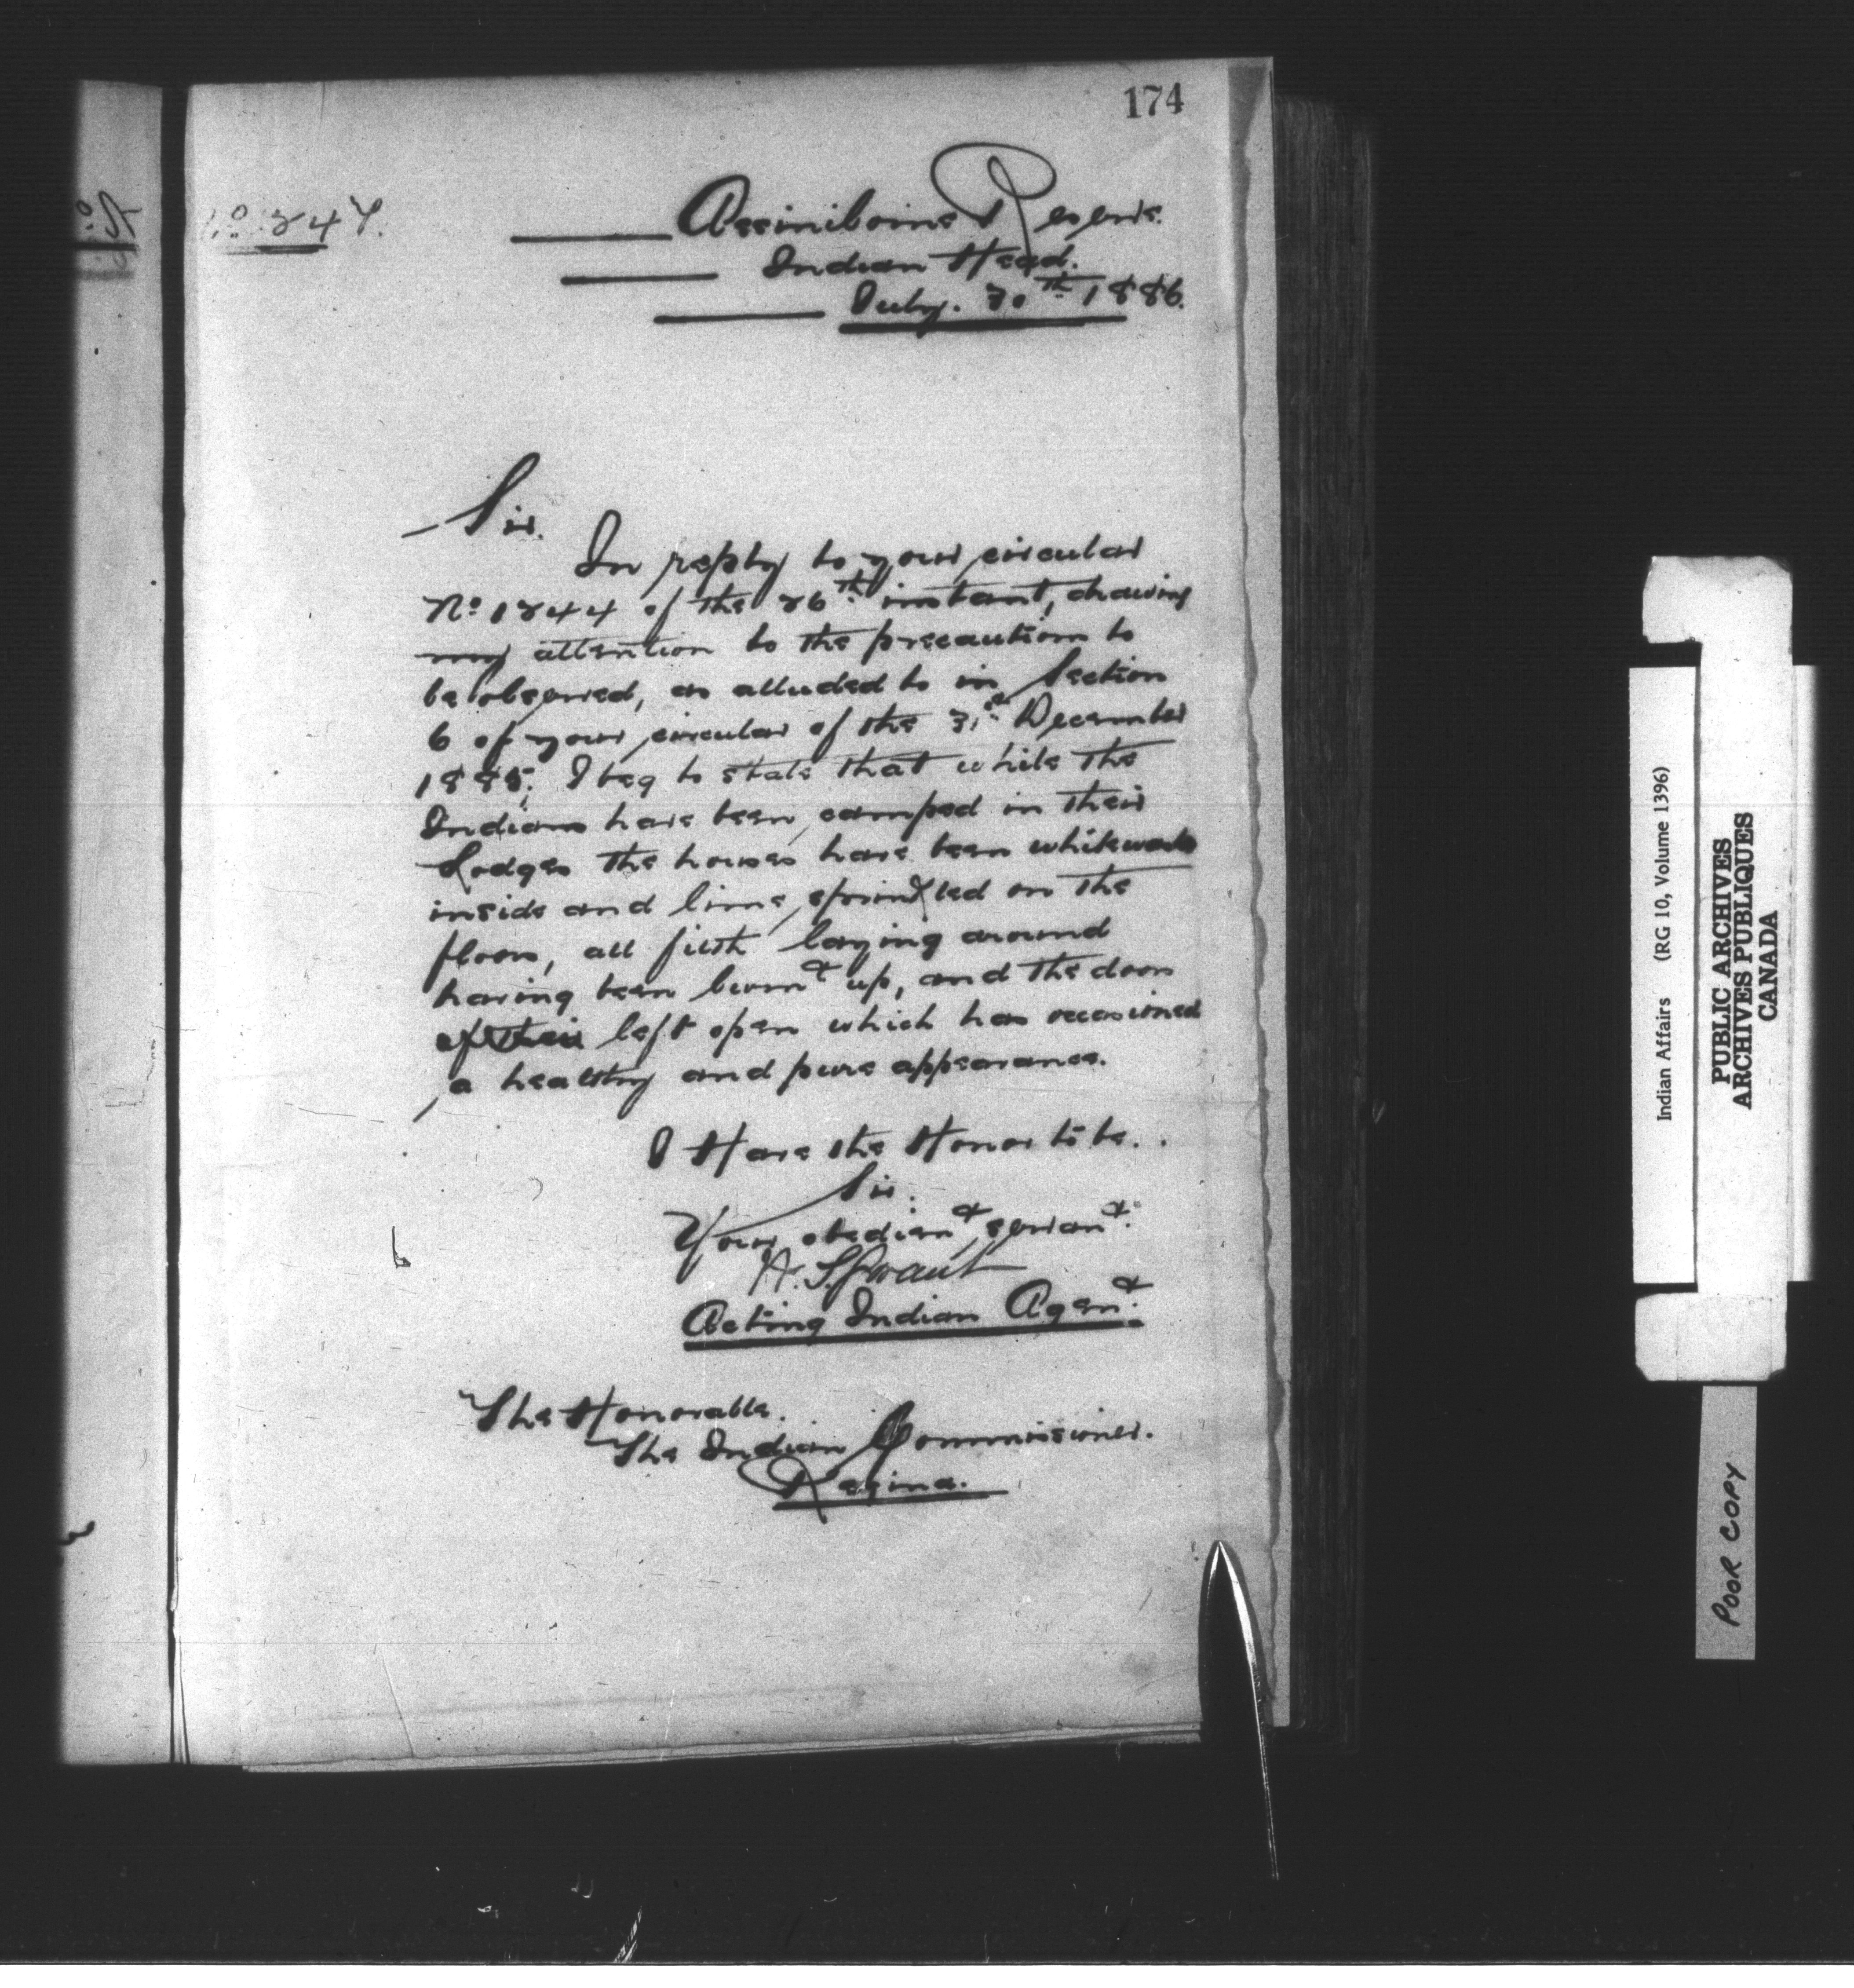 174
No 247.
Assiniboine Reserve.
Indian Head.
July. 30th 1886.
Sir.
In reply to your circular
No 1244 of the 26th instant, drawing
my attention to the precautions to
be observed, as alluded to in Section
6 of your circular of the 31st December
1885; I beg to state that while the
Indians have been camped in their
Lodges the houses have been whitewash
inside and lime sprinkled on the
floors, all filth laying around
having been burnt up, and the doors
of their left open which has occasioned
a healthy and pure appearance.
I Have the Honor to be..
Sir.
Your obedient servant.
Acting Indian Agent.
The Honorable.
The Indian Commissioner.
Regina.
Indian Affairs (RG 10, Volume 1396)
PUBLIC ARCHIVES
ARCHIVES PUBLIQUES
CANADA
POOR COPY